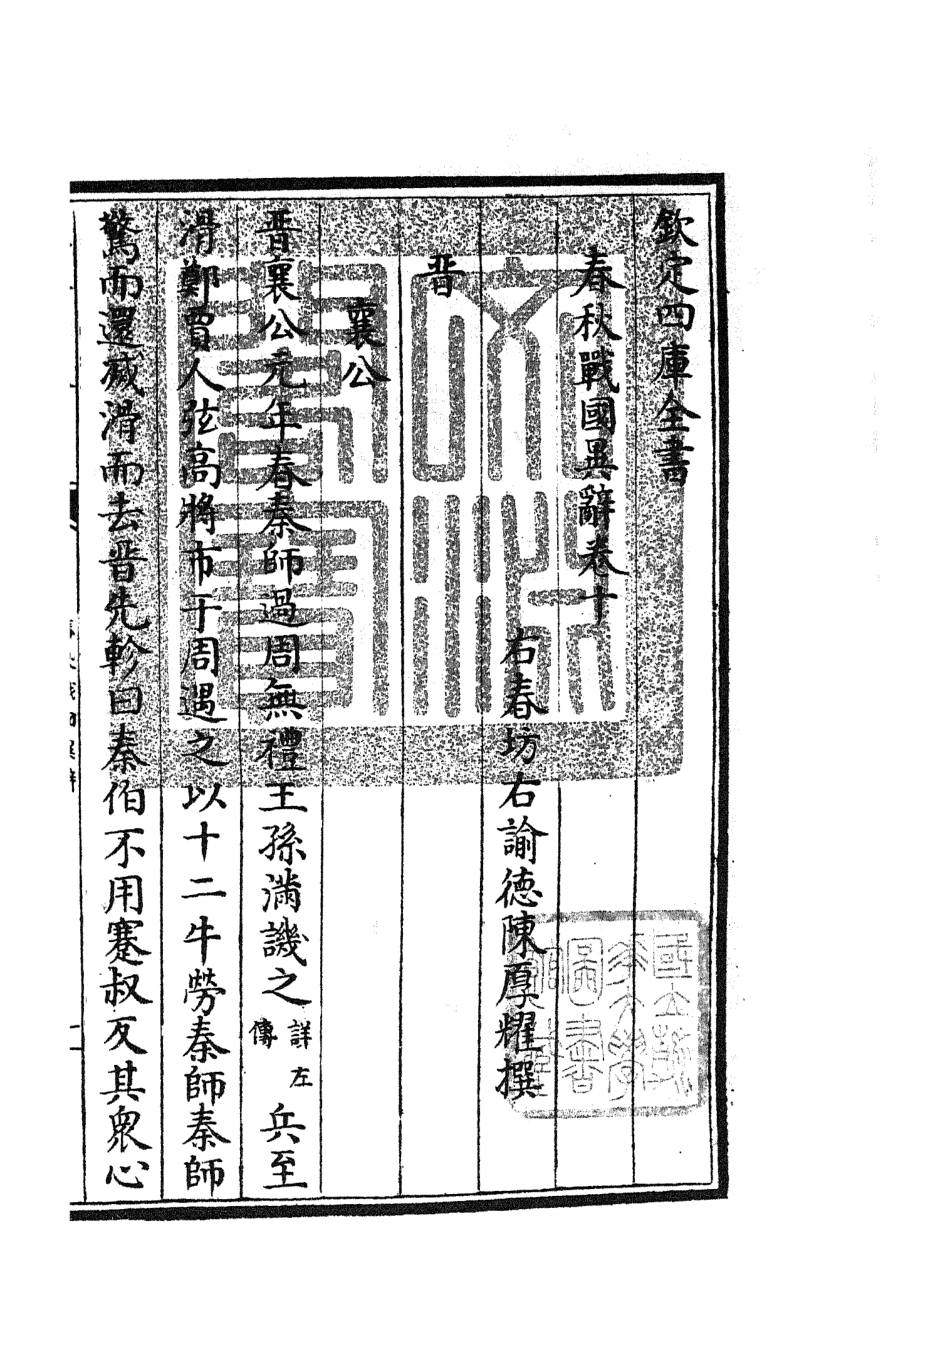 欽定四庫全書
春秋戰國異辭卷十
右春坊右諭德陳厚耀撰
晉
襄公
晉襄公元年春秦師過周無禮王孫滿譏之詳左傳兵至
滑鄭賈人弦高將市于周遇之以十二牛勞秦師秦師
驚而還滅滑而去晉先軫曰秦伯不用蹇叔反其衆心